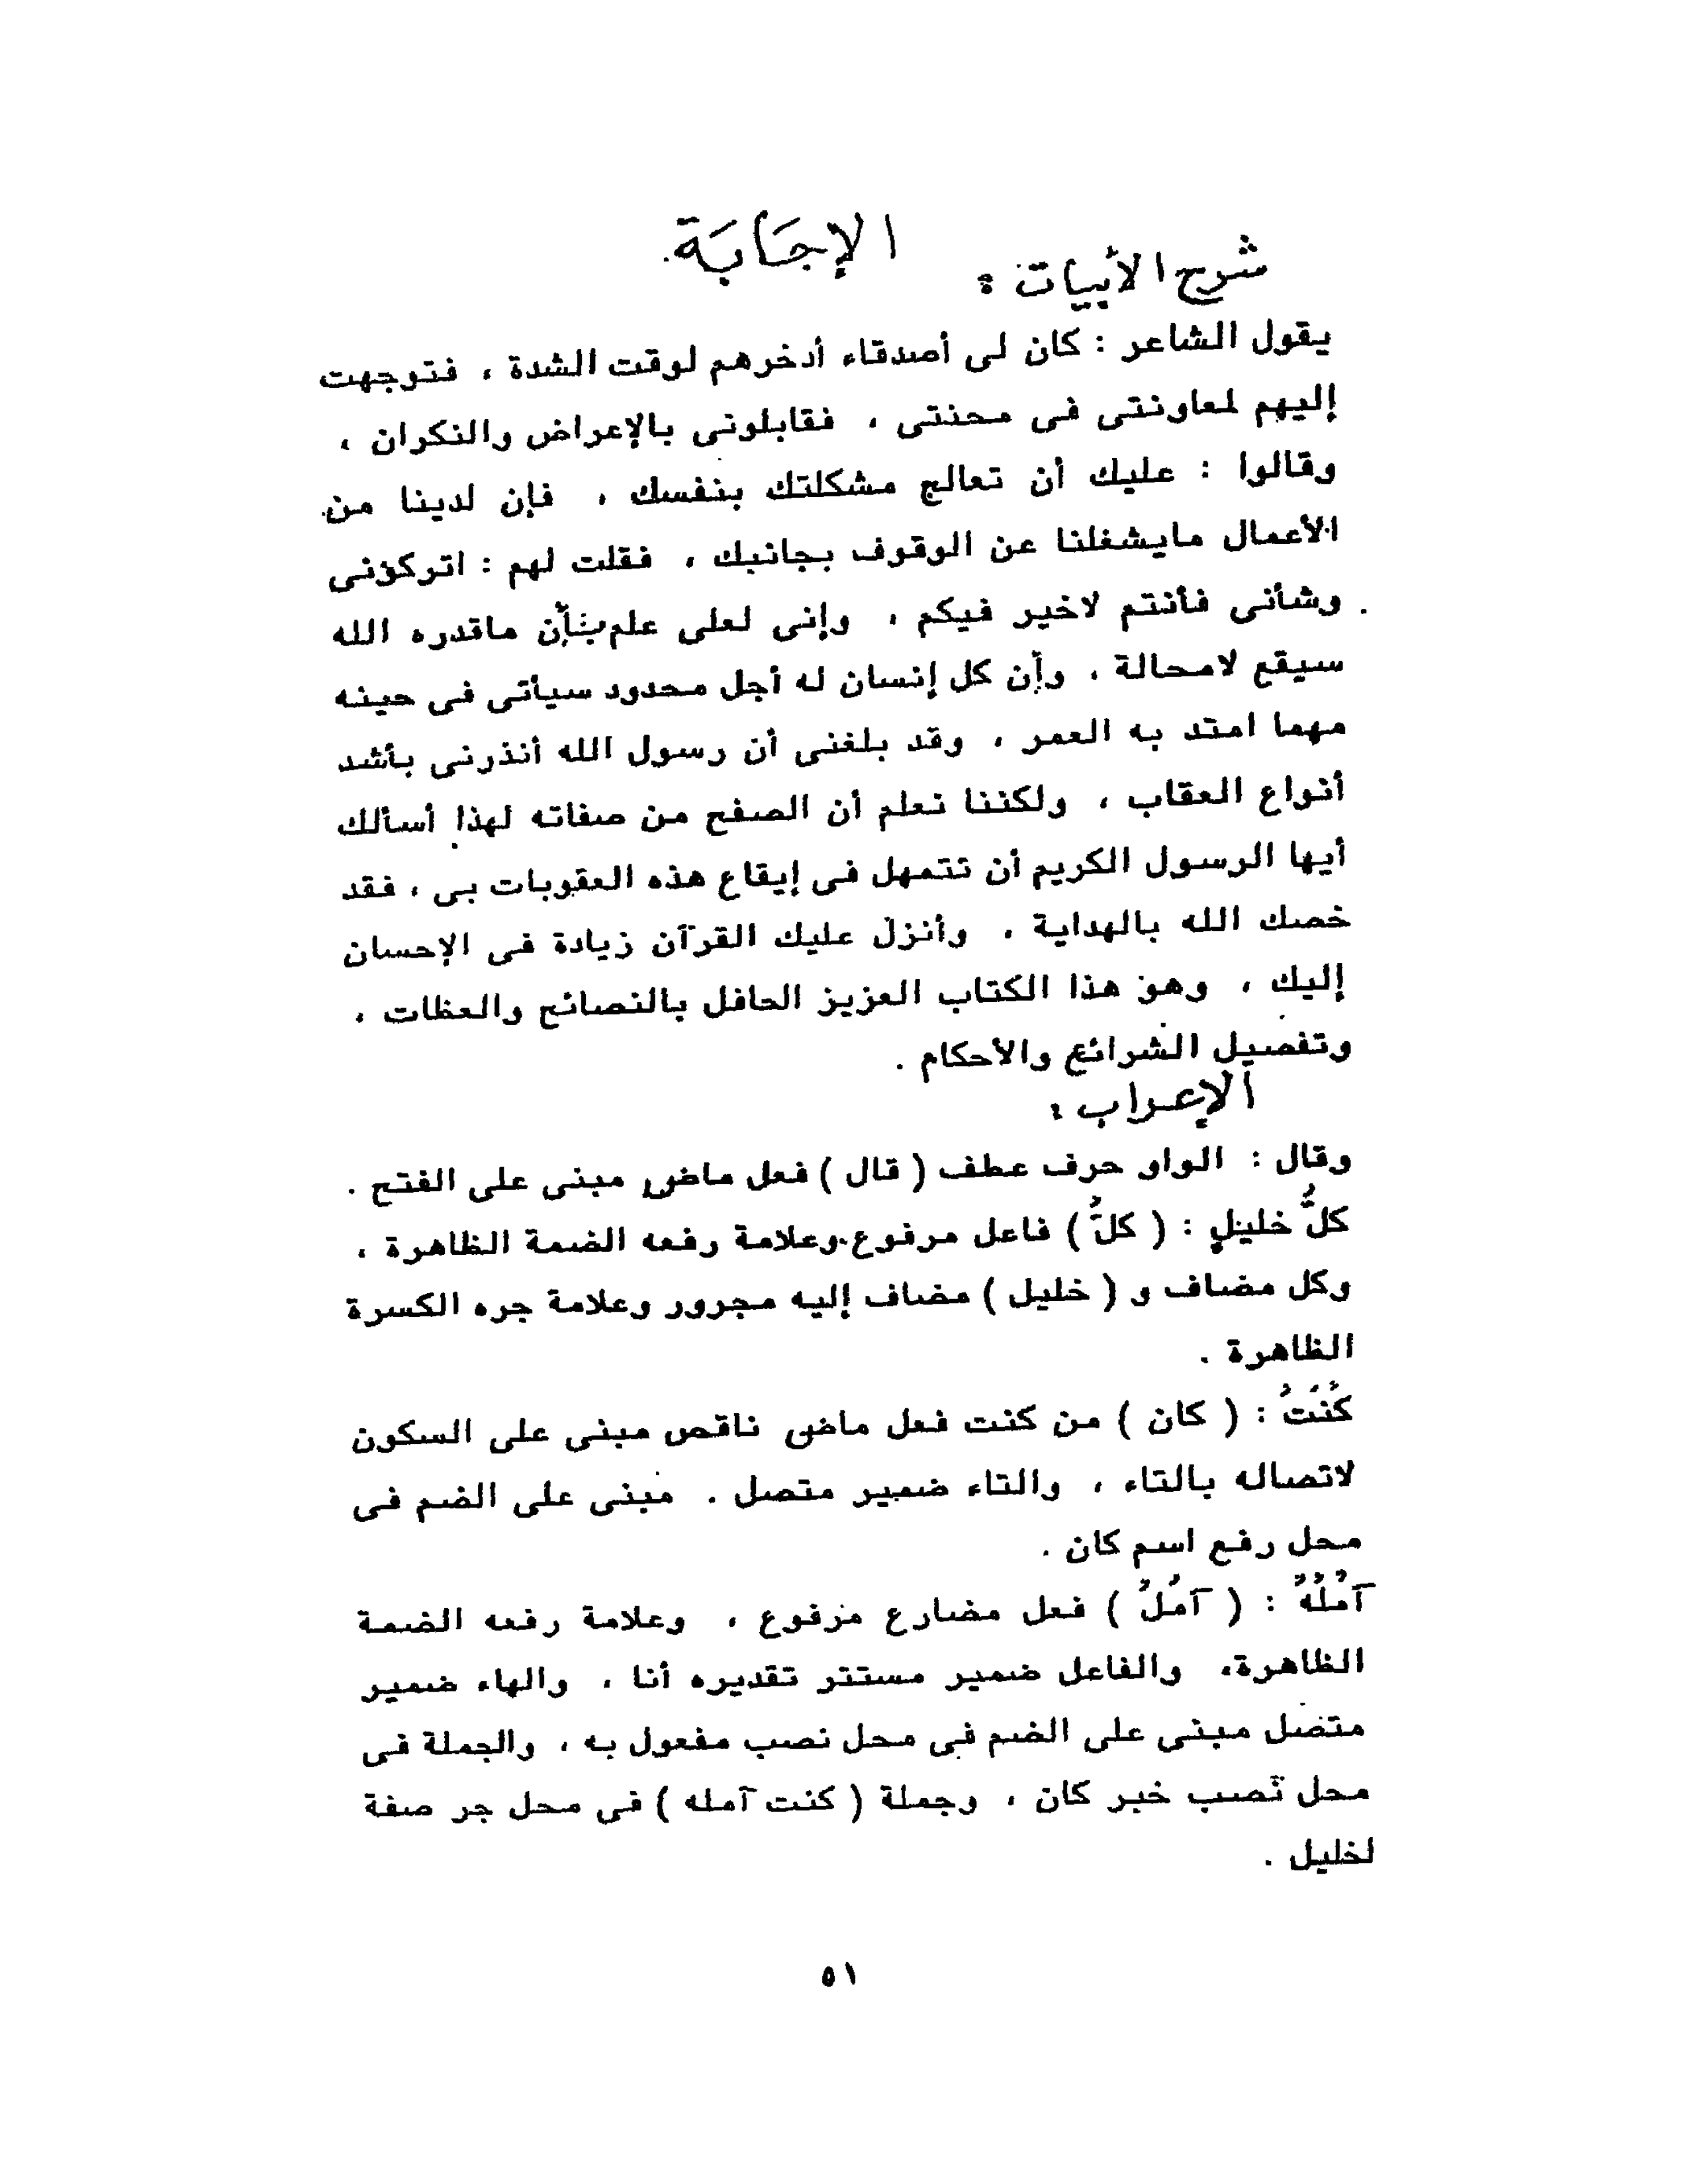 الإجَابَة
شرح الأبيات :
يقول الشاعر : كان لى أصدقاء أدخرهم لوقت الشدة ، فتوجهت
إليهم لمعاونتى فى محنتى ، فقابلونى بالإعراض والنكران ،
وقالوا : عليك أن تعالج مشكلتك بنفسك ، فإن لدينا من
الأعمال مايشغلنا عن الوقوف بجانبك ، فقلت لهم : اتركونى
وشأنى فأنتم لاخير فيكم ، وإنى لعلى علم بأن ماقدره الله
سيقع لامحالة ، وأن كل إنسان له أجل محدود سيأتى فى حينه
مهما امتد به العمر ، وقد بلغنى أن رسول الله أنذرنى بأشد
أنواع العقاب ، ولكننا نعلم أن الصفح من صفاته لهذا أسألك
أيها الرسول الكريم أن تتمهل فى إيقاع هذه العقوبات بى ، فقد
خصك الله بالهداية ، وأنزل عليك القرآن زيادة فى الإحسان
إليك ، وهو هذا الكتاب العزيز الحافل بالنصائح والعظات ،
وتفصيل الشرائع والأحكام .
الإعراب :
وقال : الواو حرف عطف ( قال ) فعل ماضى مبنى على الفتح .
كلُّ خليلٍ : ( كلُّ ) فاعل مرفوع وعلامة رفعه الضمة الظاهرة ،
وكل مضاف و ( خليل ) مضاف إليه مجرور وعلامة جره الكسرة
الظاهرة .
كُنْتُ : ( كان ) من كنت فعل ماضى ناقص مبنى على السكون
لاتصاله بالتاء ، والتاء ضمير متصل . مبنى على الضم فى
محل رفع اسم كان .
آمُلُهُ : ( آمُلُ ) فعل مضارع مرفوع ، وعلامة رفعه الضمة
الظاهرة، والفاعل ضمير مستتر تقديره أنا ، والهاء ضمير
متصل مبنى على الضم فى محل نصب مفعول به ، والجملة فى
محل نصب خبر كان ، وجملة ( كنت آمله ) فى محل جر صفة
لخليل .
٥١